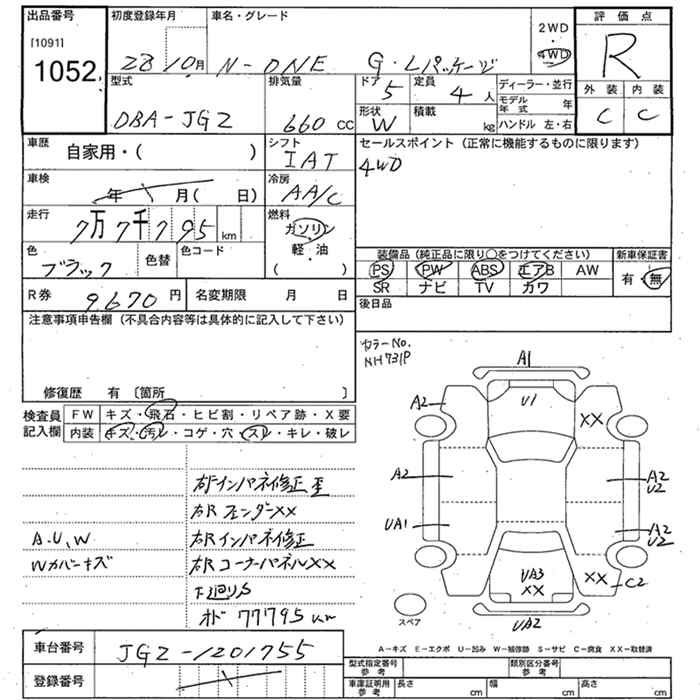 出品番号
[1091]
1052
初度登録年月
28 10月
車名・グレード
N-ONE G・Lパッケージ
2WD
・
4WD
評価点
R
外装 内装
C C
型式
DBA-JG2
排気量
660 CC
ドア 5
定員 4 人
形状 W
積載 kg
ディーラー・並行
モデル年式 年
ハンドル 左・右
車歴
自家用・( )
シフト
IAT
セールスポイント (正常に機能するものに限ります)
4WD
車検
年 月( 日)
冷房
AA/C
走行
7万7千795 km
燃料
ガソリン
・
軽・油
( )
色
ブラック
色替
色コード
装備品 (純正品に限り○をつけてください)
PS PW ABS エアB AW
SR ナビ TV カワ
新車保証書
有・無
R券
9670 円
名変期限 月 日
後日品
注意事項申告欄 (不具合内容等は具体的に記入して下さい)
修復歴 有 〔箇所 〕
カラーNo.
NH731P
検査員記入欄
FW キズ・飛石・ヒビ割・リペア跡・X要
内装 キズ・汚レ・コゲ・穴・スレ・キレ・破レ
A.U.W
Wカバーキズ
右インパネ修正
右RフェンダーXX
右Rインパネ修正
右RコーナーパネルXX
下廻りS
オド 77795km
A1
A2
U1
XX
A2
A2
U2
UA1
A2
U2
UA3
XX
XX
C2
UA2
スペア
A-キズ E-エクボ U-凹み W-補修跡 S-サビ C-腐食 XX-取替済
車台番号
JG2-1201755
登録番号
型式指定番号 参考
類別区分番号 参考
車庫証明用 参考
長さ cm
幅 cm
高さ cm